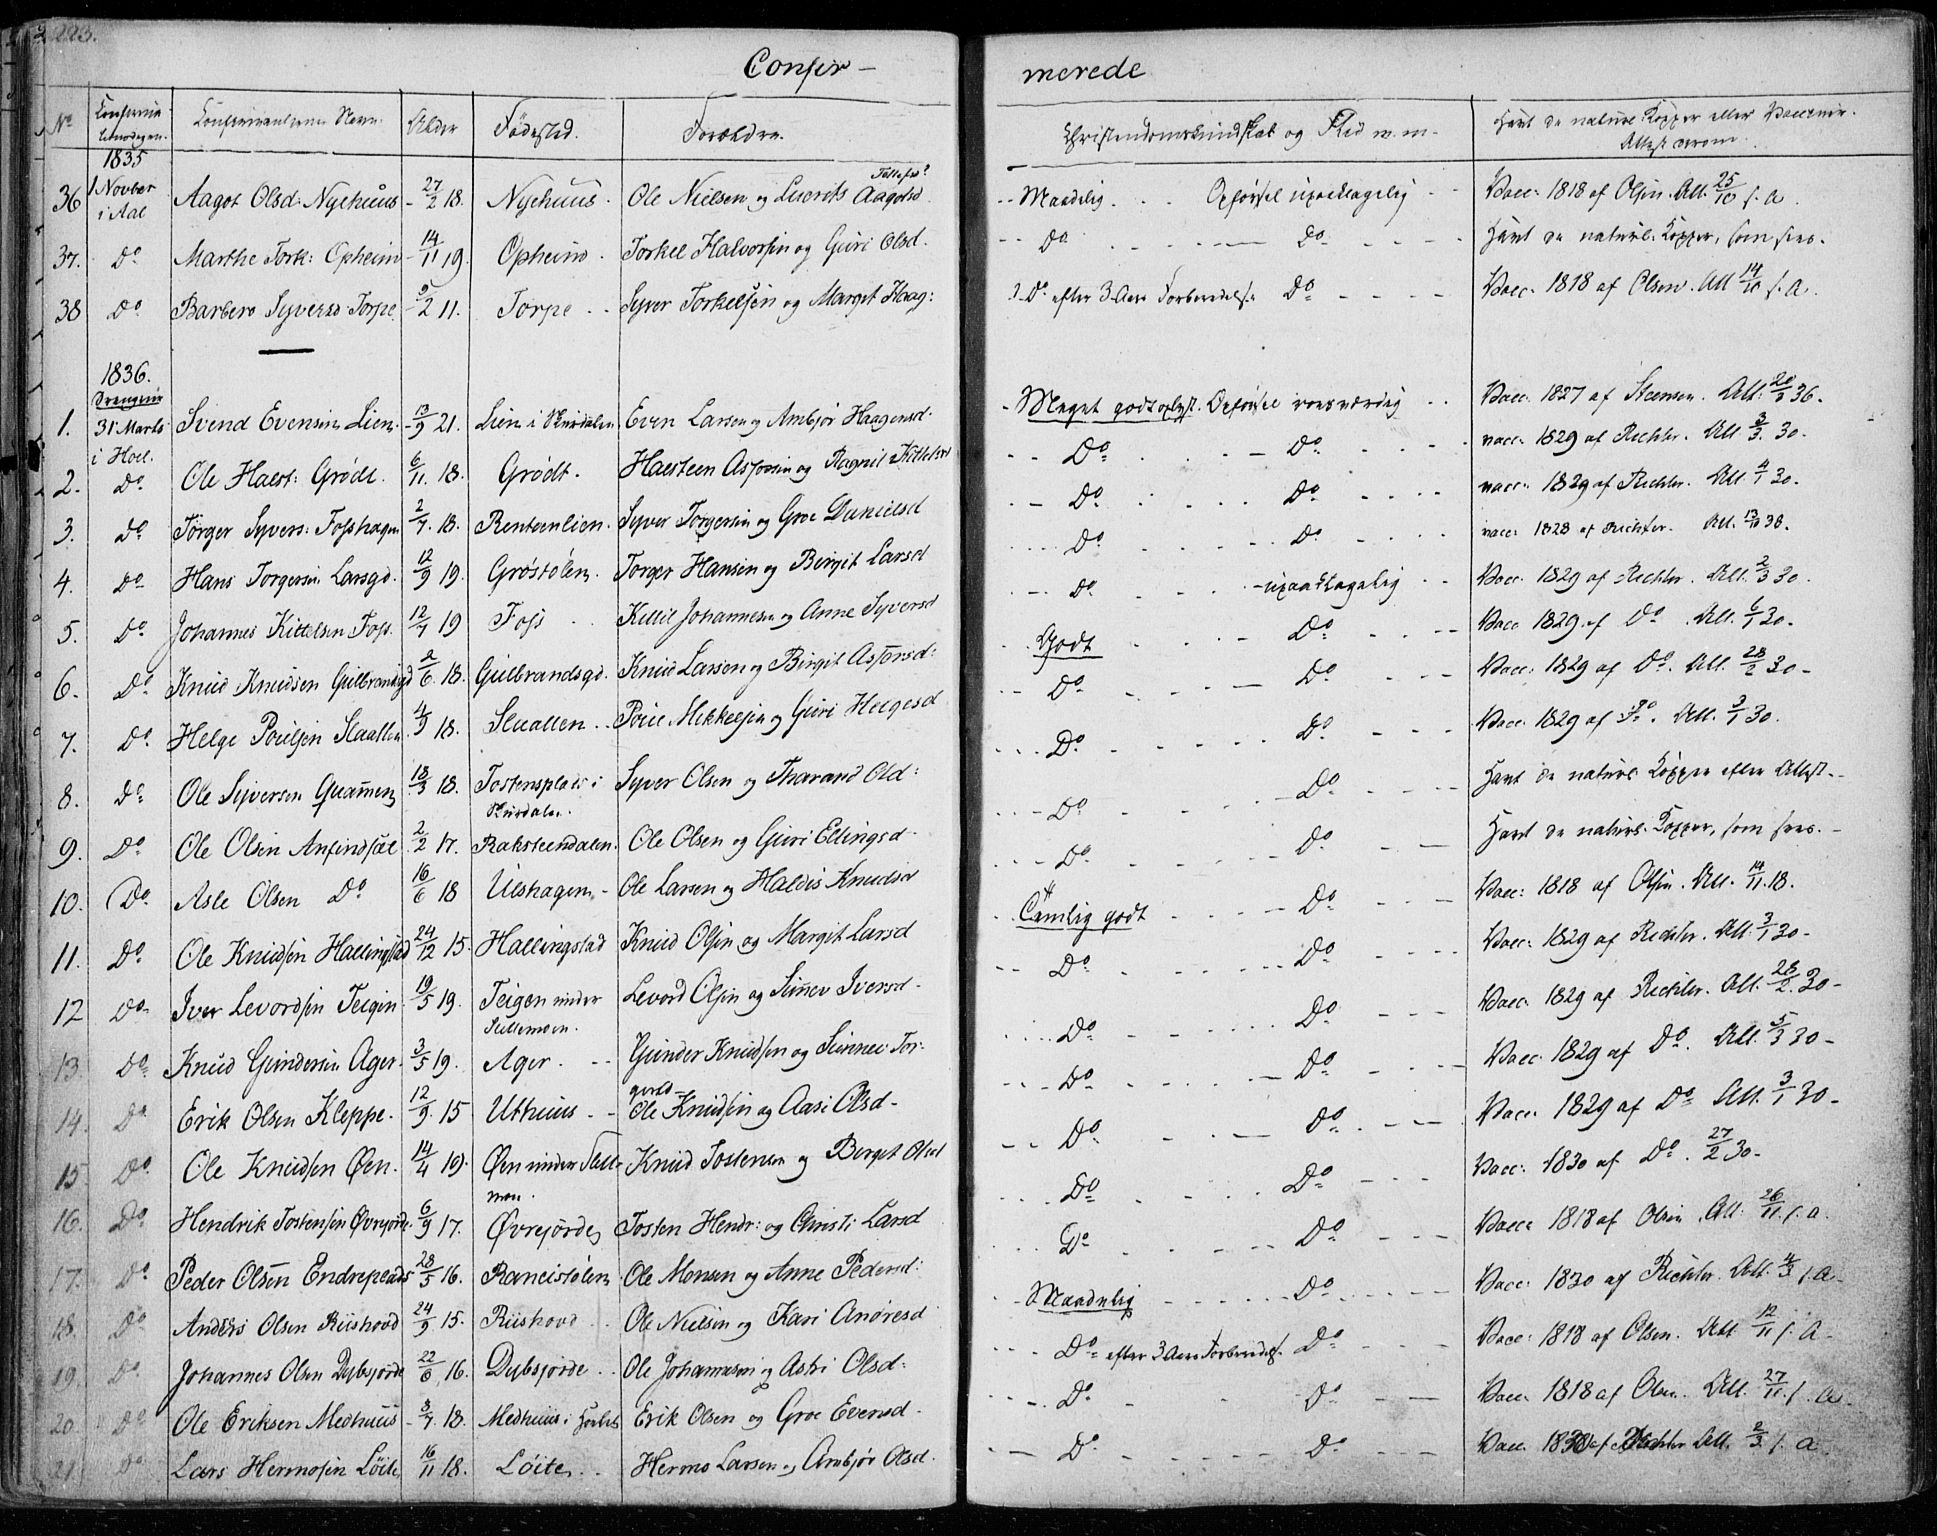 223.
Confir – merede
No Confirma- tionsdagen. Confirmandernes Navn. Alder Födested. Forældre. Christendomskundskab og Flid m. m. Havt de naturl. Kopper eller Vacciner. Attest derom.
1835
36 1 Novber i Aal Aagot Olsd. Nyehuus 27/2 18. Nyehuus. Ole Nielsen og Aagotsd. Maadelig. Opförsel upaaklagelig Vacc. 1818 af Olsen. Att. 25/10 s. a.
37. Do Marthe Tork: Opheim 14/11 19. Opheim. Torkel Halvorsen og Guri Olsd. Do Do Havt de naturl. Kopper, som sees.
38 Do Barbero Syversd Torpe 9/2 11. Torpe Syver Torkelsen og Margit Haag: Do efter 3 Aars Forberedelse Do Vacc. 1818 af Olsen. Att 14/10 s. a.
1836.
Drengene
1. 31 Marts i Hoel. Svend Evensen Lien 13/9 21. Lien i Skurdalen Even Larsen og Ambjör Haagensd. Meget godt oplyst. Opförsel roesværdig Vacc. 1827 af Steensen. Att. 20/1 36.
2. Do Ole Haest: Grödt. 6/11 18. Grödt. Haesteen Asforsen og Ragnil Kittelsd Do Do vacc. 1829 af Richter. Att 3/3 30.
3. Do Törger Syvers: Fosshagen 2/7 18. Renteenlien. Syver Torgersen og Groe Danielsd Do Do vacc. 1829 af Richter. Att 4/1 30.
4. Do Hans Torgersen Larsgd. 12/9 19. Gröstölen. Torger Hansen og Birgit Larsd Do Do vacc. 1828 af Richter. Att. 13/10 38.
5. Do Johannes Kittelsen Foss. 12/7 19 Foss Kittil Johannesen og Anne Syversd Do upaaklagelig Vacc. 1829 af Richter. Att. 2/3 30.
6. Do Knud Knudsen Gulbrandsgd 2/6 18. Gulbrandsgd. Knud Larsen og Birgit Asforsd: Godt Do Vacc 1829 af Do. Att. 6/1 30.
7. Do Helge Poulsen Slaatten 4/9 18. Slaatten Poul Mikkelsen og Guri Helgesd Do Do Vacc. 1829 af Do. Att. 28/2 30
8. Do Ole Syversen Guamen 18/3 18. Tostensplads i Skurdalen. Syver Olsen og Tharand Old: Do Do Vacc. 1829 af Do. Att. 3/1 30.
9. Do Ole Olsen Anfindsæl 2/2 17. Raksteendalen. Ole Olsen og Guri Ellingsd. Do Do Havt de naturl. Kopper efter Attest.
10. Do Asle Olsen Do 16/6 18 Ulshagen Ole Larsen og Haldis Knudsd Do Do Havt de naturl. Kopper, som sees.
11. Do Ole Knudsen Hallingstad 24/12 15. Hallingstad Knud Olsen og Margit Larsd Temlig godt Do Vacc: 1818 af Olsen. Att. 14/11 18.
12 Do Iver Levordsen Teigen 19/5 19. Teigen under Sullemoen. Levord Olsen og Sünnev Iversd Do Do Vacc. 1829 af Richter. Att. 3/1 30
13. Do Knud Gundersen Ager. 3/5 19. Ager. Gunder Knudsen og Sünnev Tor- gersd Do Do Vacc. 1829 af Richter. Att. 28/2 30
14. Do Erik Olsen Kleppe. 12/9 15 Uthuus Ole Knudsen og Aasi Olsd Do Do Vacc. 1829 af Do. Att. 5/3 30
15. Do Ole Knudsen Öen. 14/4 19. Öen under Sulle- moen. Knud Tostensen og Berget Olsd Do Do Vacc. 1829 af Do Att. 3/1 30
16. Do Hendrik Tostensen Övrejorde. 6/9 17. Övrejorde Tosten Hendr: og Christi Larsd Do Do Vacc. 1830 af Do. 27/2 30
17. Do Peder Olsen Endreplads 28/5 16. Rancistölen Ole Monsen og Anne Pedersd. Do Do Vacc 1818 af Olsen. Att. 26/11 s. a.
18. Do Anders Olsen Riishovd 24/9 15. Riishovd Ole Nielsen og Kari Andresd Maadelig Do Vacc. 1830 af Richter. Att. 4/3 s. a.
19. Do Johannes Olsen Dybsjorde 22/6 16. Dybsjorde Ole Johannesen og Astri Olsd: Do efter 3 Aars Forberedelse. Do Vacc. 1818 af Olsen. Att 12/11 s. a
20 Do Ole Eriksen Medhuus 3/7 18. Medhuus i Erik Olsen og Groe Evensd. Do Do Vacc. 1818 af Olsen. Att. 27/11 s. a.
21 Do Lars Hermosen Löite 16/11 18. Löite Hermo Larsen og Ambjör Olsd. Do Do Vacc. 1830 af Richter Att. 2/3 s. a